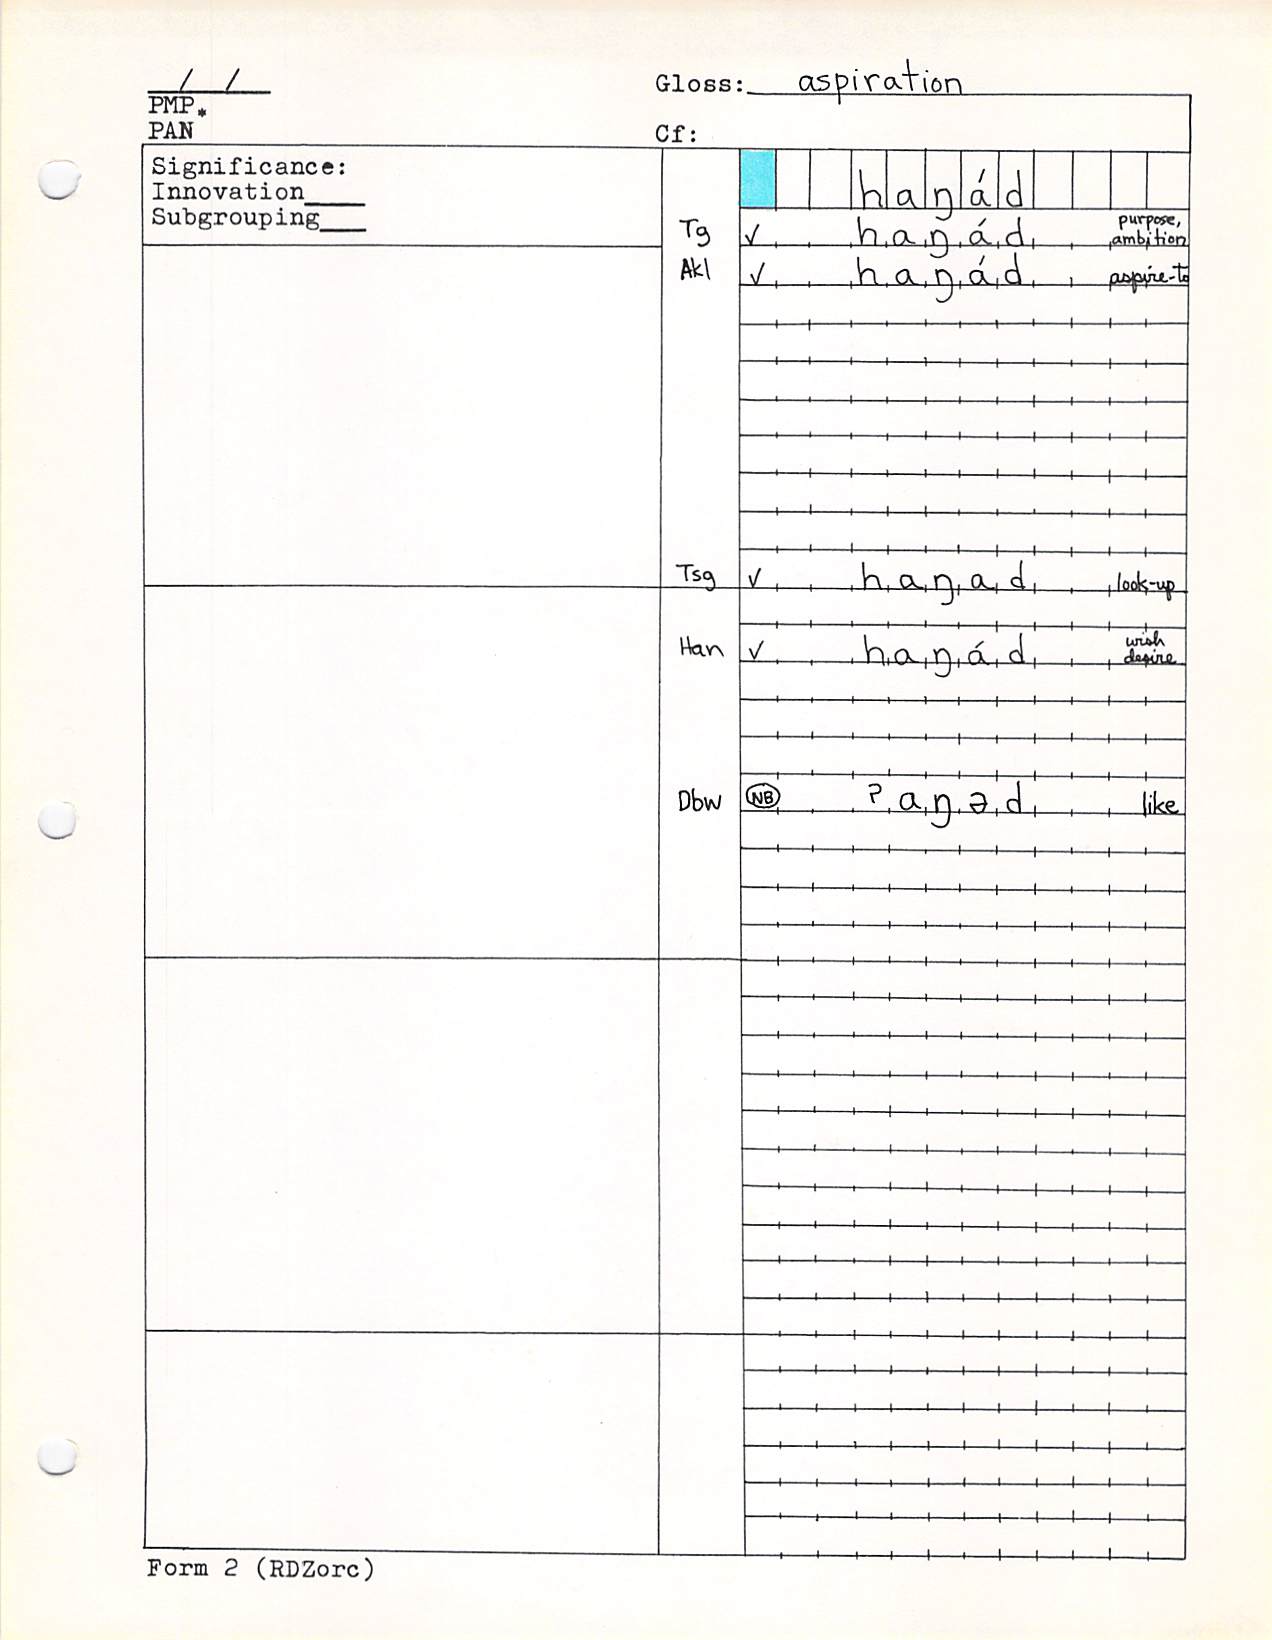 / /
Gloss: aspiration
PMP*
PAN
Cf:
Significance:
Innovation____
Subgrouping____
haŋád
Tg ✓ haŋád purpose, ambition
Akl ✓ haŋád aspire-to
Tsg ✓ haŋad look-up
Han ✓ haŋád wish desire
Dbw NB ʔaŋəd like
Form 2 (RDZorc)